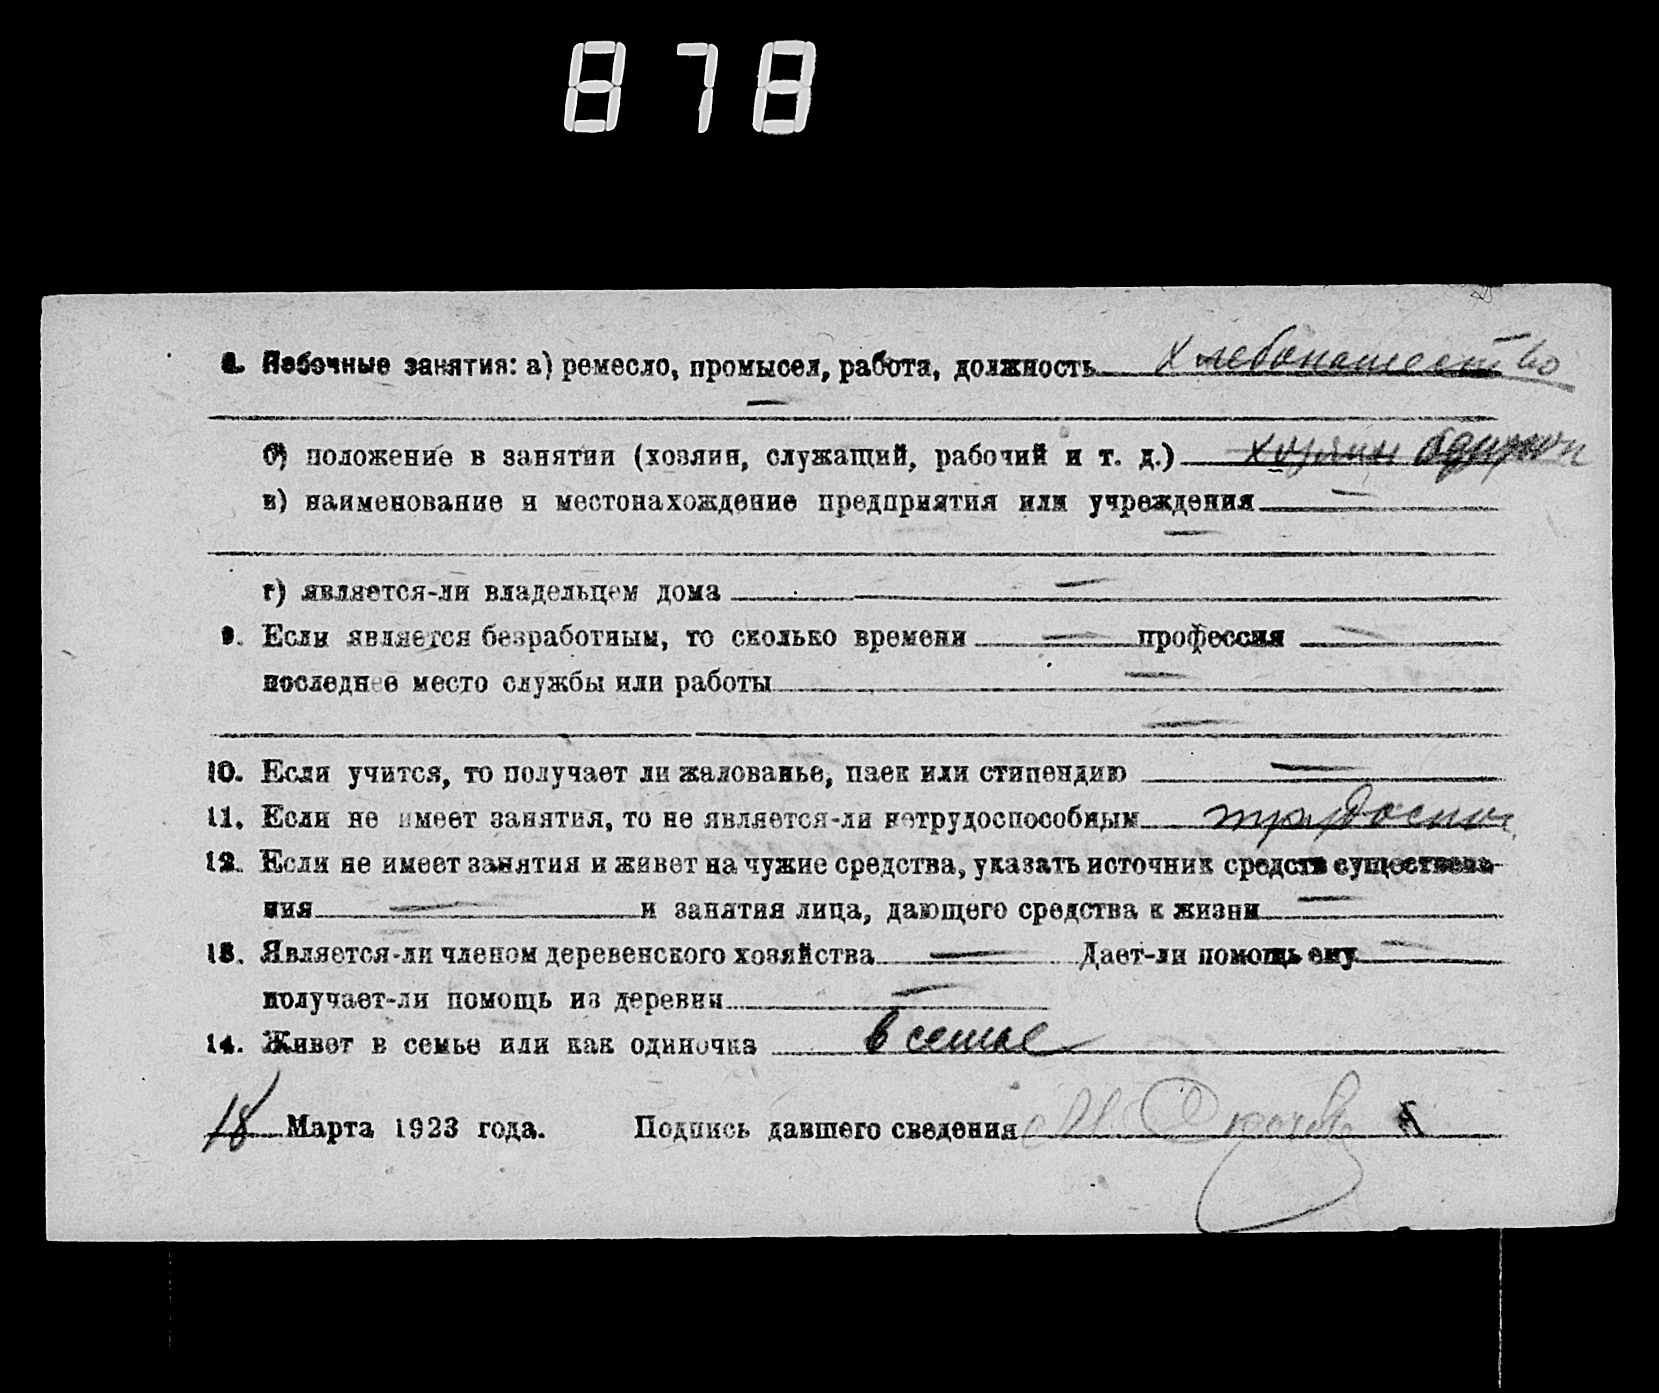 878
8. Побочные занятия: а) ремесло, промысел, работа, должность хлебопашество
—
б) положение в занятии (хозяин, служащий, рабочий и т. д.) хозяин
в) наименование и местонахождение предприятия или учреждения —
—
г) является-ли владельцем дома —
9. Если является безработным, то сколько времени — профессия —
последнее место службы или работы —
—
10. Если учится, то получает ли жалованье, паек или стипендию —
11. Если не имеет занятия, то не является-ли нетрудоспособным трудоспос
12. Если не имеет занятия и живет на чужие средства, указать источник средств существова-
ния — и занятия лица, дающего средства к жизни —
13. Является-ли членом деревенского хозяйства — Дает-ли помощь ему —
получает-ли помощь из деревни —
14. Живет в семье или как одиночка в семье
18 Марта 1923 года. Подпись давшего сведения